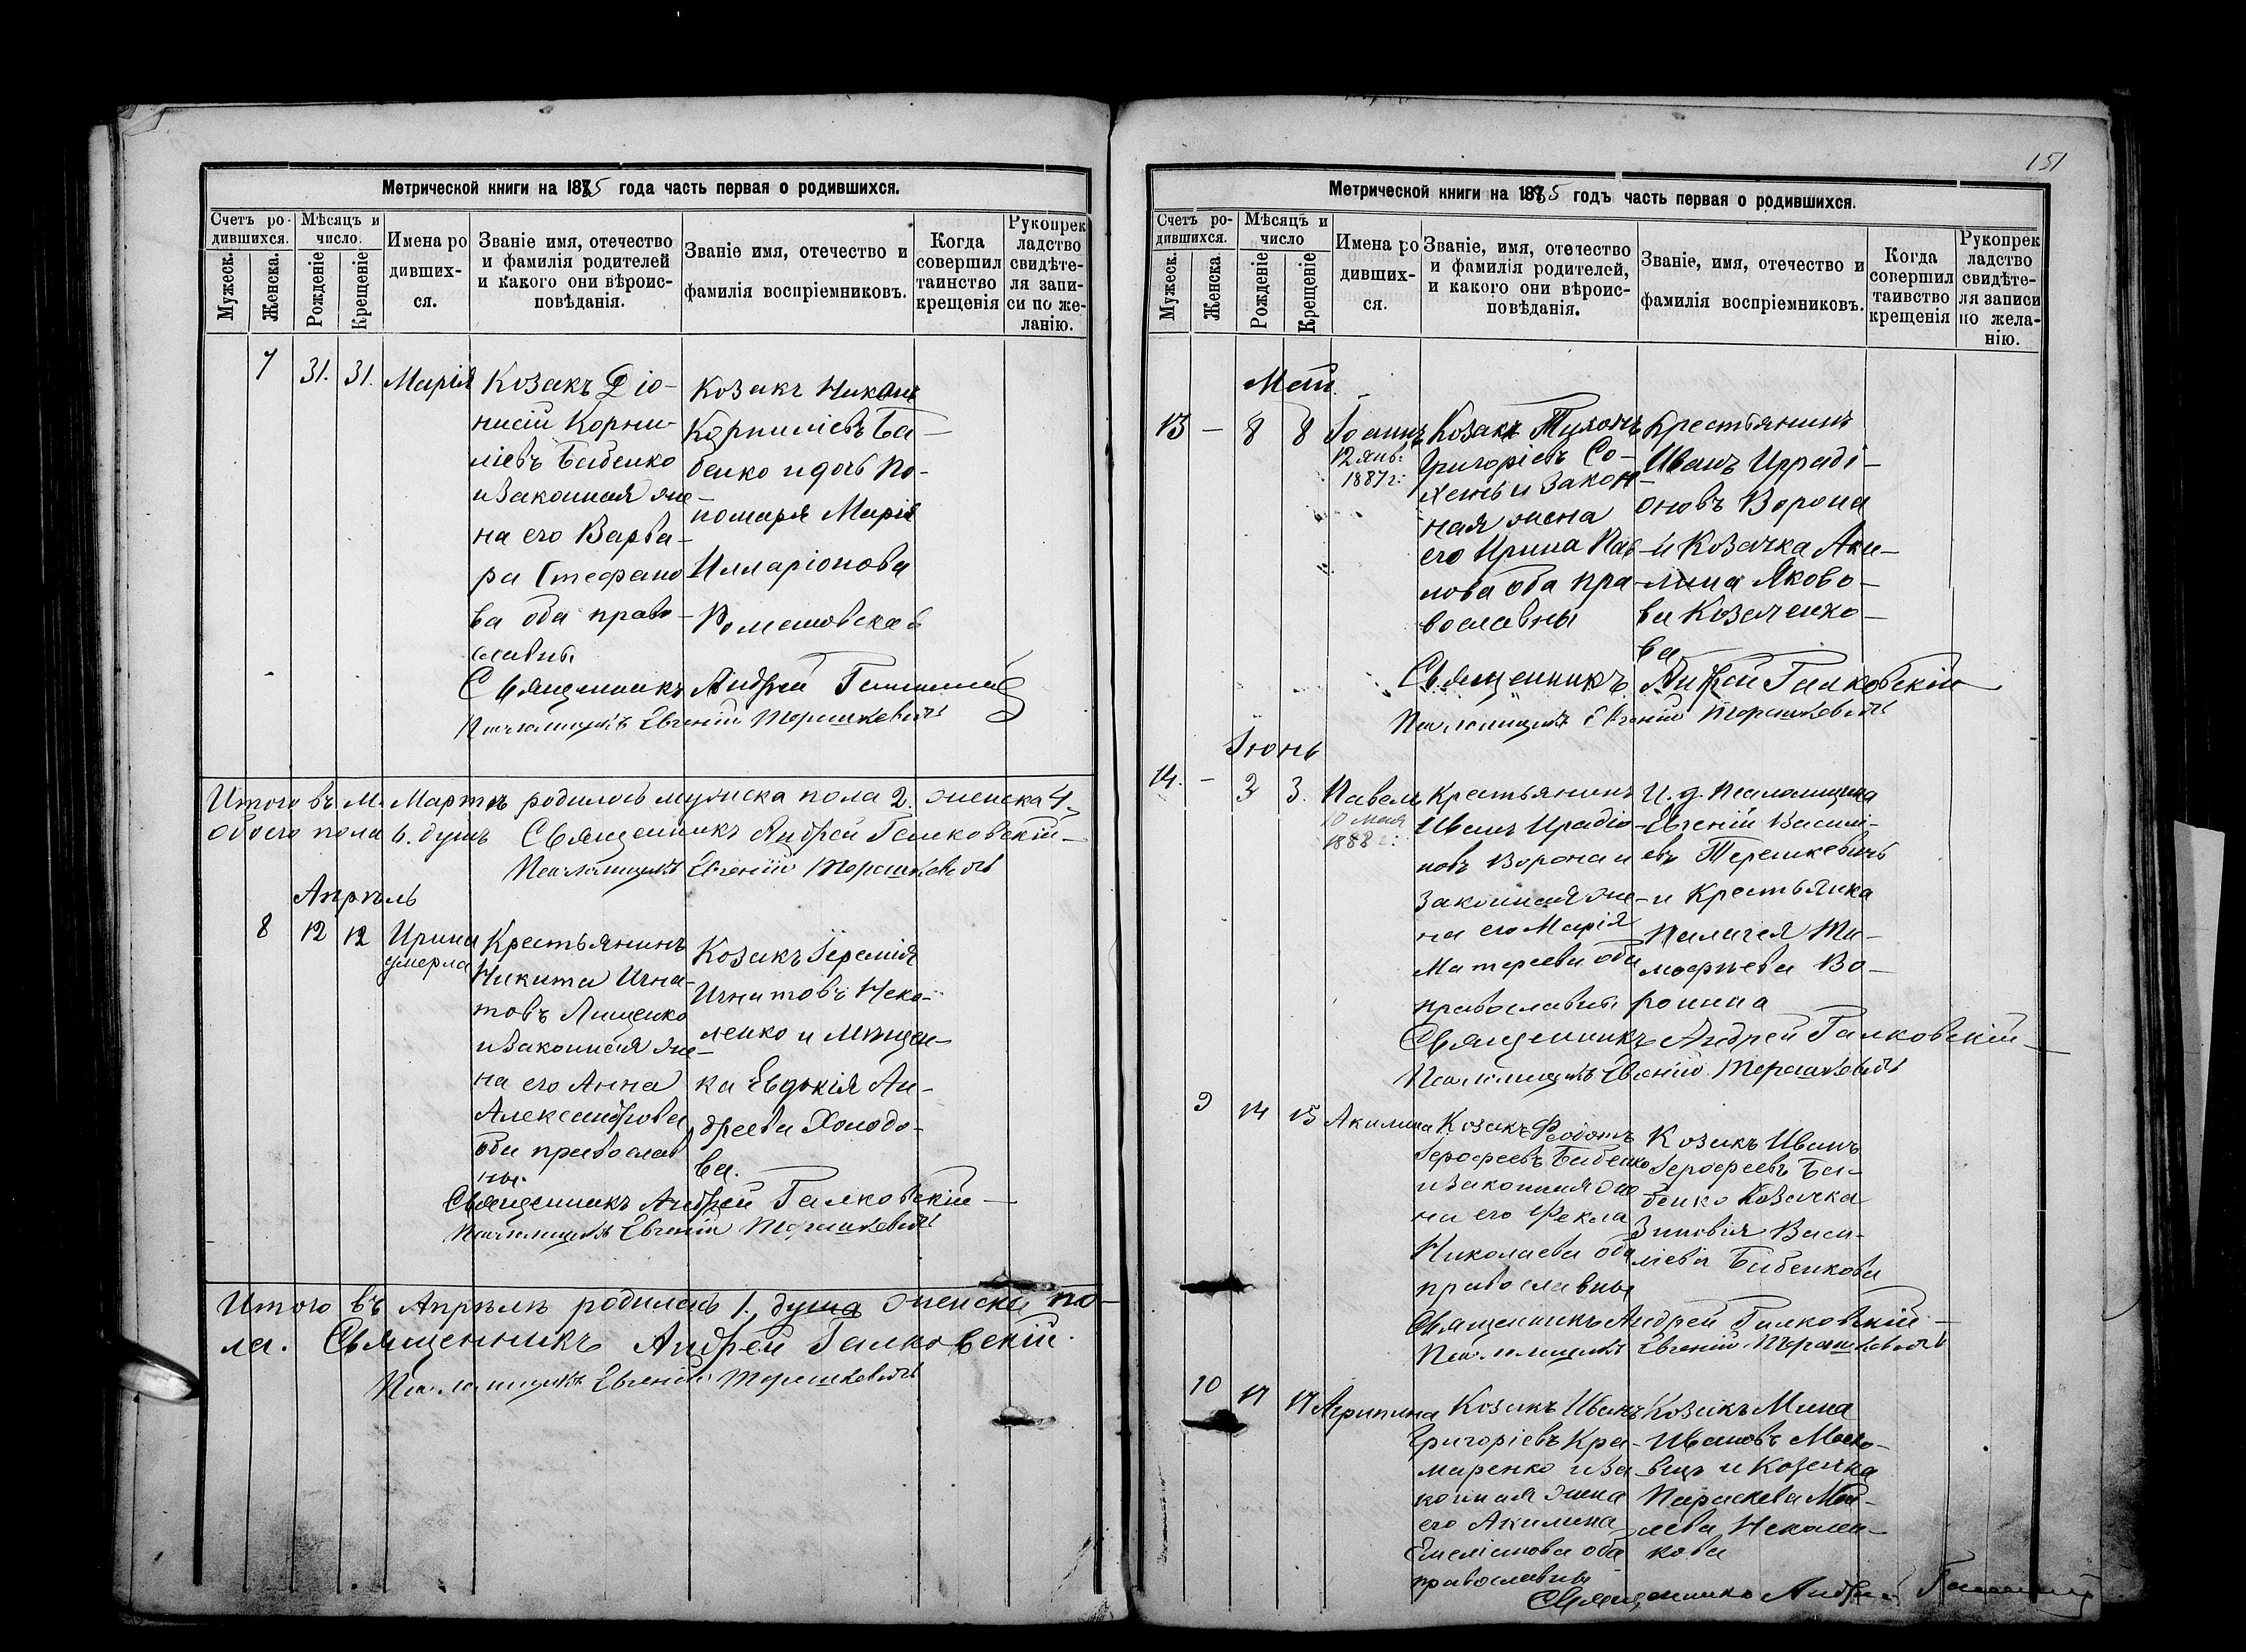 Метрической книги на 1885 года часть первая о родившихся.
Счетъ ро-
дившихся.
Мѣсяцъ и
число.
Мужеск.
Женска.
Рожденіе
Крещеніе
Имена ро
дивших-
ся.
Званіе имя, отечество
и фамилія родителей
и какого они вѣроис-
повѣданія.
Званіе имя, отечество и
фамилія воспріемниковъ.
Когда
совершил
таинство
крещенія
Рукопрек
ладство
свидѣте-
ля запи-
си по же-
ланію.
7 31. 31. Марія
Козакъ Діо-
нисій Корни-
ліевъ Бабенко
и законная же-
на его Варва-
ра Стефано
ва оба право-
славны
Козакъ
Корниліевъ Ба-
бенко и дочь по-
номаря Марія
Илларіонова
Священникъ Андрей
Псаломщикъ Евгеній Терешкевичъ
Итого въ М. Мартѣ родилось мужска пола 2. женска 4,
обоего пола 6. душъ Священникъ Андрей Галковскій
Псаломщикъ Евгеній Терешкевичъ
Апрѣль
8 12 12 Ирина
умерла
Крестьянинъ
Никита Игна-
товъ Лищенко
и законная же-
на его Анна
Александрова
оба православ
ны.
Козакъ Іеремія
Игнатовъ Неко-
ленко и мѣщан-
ка Евдокія Ан-
дреева Холодо-
ва.
Священникъ Андрей Галковскій
Псаломщикъ Евгеній Терешкевичъ
Итого въ Апрѣлѣ родилась 1. душа женска по-
ла. Священникъ Андрей Галковскій.
Псаломщикъ Евгеній Терешкевичъ
151
Метрической книги на 1885 годъ часть первая о родившихся.
Счетъ ро-
дившихся.
Мѣсяцъ и
число
Мужеск.
Женска.
Рожденіе
Крещеніе
Имена ро
дивших-
ся.
Званіе, имя, отечество
и фамилія родителей,
и какого они вѣроис-
повѣданія.
Званіе, имя, отечество и
фамилія воспріемниковъ.
Когда
совершил
таивство
крещенія
Рукопрек
ладство
свидѣте-
ля записи
по жела-
нію.
Май.
13 - 8 8 Іоаннъ
12 янв.
1887 г.
Козакъ
Григоріевъ Со-
хень и закон-
ная жена
его Ирина Пав-
лова оба пра-
вославны
Крестьянинъ
Иванъ Ирраді-
оновъ Ворона
и Козачка Аки-
лина Яково-
ва Козаченко-
ва
Священникъ Андрей Галковскій
Псаломщикъ Евгеній Терешкевичъ
Іюнь
14. - 3 3. Павелъ
10 мая
1888 г.
Крестьянинъ
Иванъ Ирадіо-
новъ Ворона и
законная же-
на его Марія
Матѳеева оба
православны
И. д. Псаломщика
Евгеній Васили-
евъ Терешкевичъ
и Крестьянка
Палагея Ти-
мофѣева Во-
ронина
Священникъ Андрей Галковскій
Псаломщикъ Евгеній Терешкевичъ
9 14 15 Акилина
Козакъ Ѳеодотъ
Іерофеевъ Бабенко
и законная же
на его Фекла
Николаева оба
православны
Козакъ Иванъ
Іерофеевъ Ба-
бенко Козачка
Зиновія Васи-
ліева Бабенкова
Священникъ Андрей Галковскій
Псаломщикъ Евгеній Терешкевичъ
10 17 17 Агрипина
Козакъ Иванъ
Григоріевъ Кра-
маренко и за-
конная жена
его Акилина
Емеліанова оба
православны
Козакъ Мина
Ивановъ Моско-
вецъ и Козачка
Параскева
Неколен-
кова
Священникъ Андрей